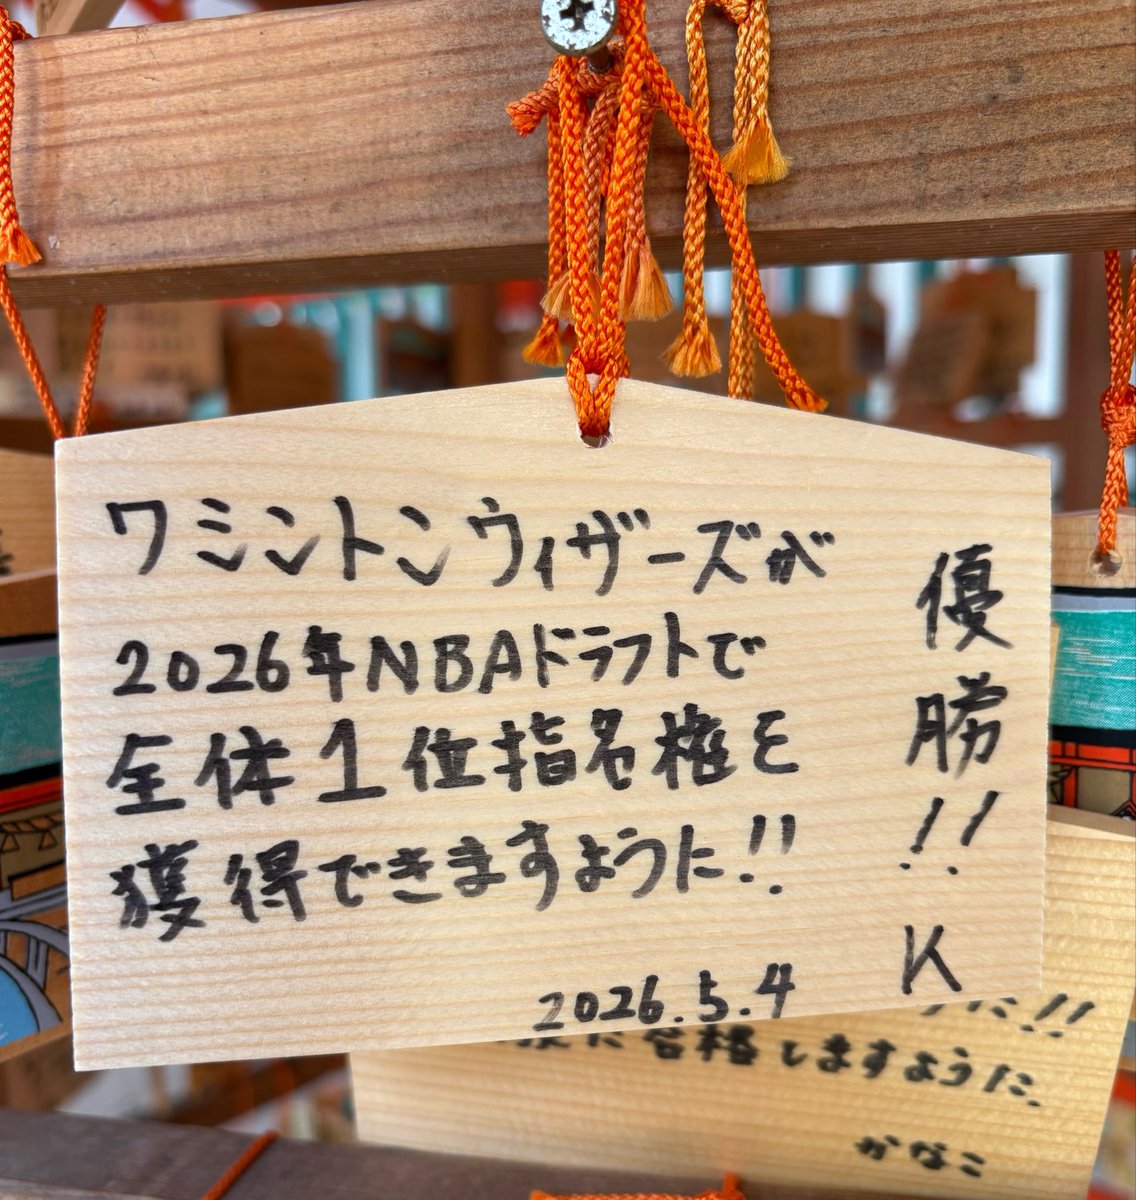 ワシントンウィザーズが
2026年NBAドラフトで
全体1位指名権を
獲得できますように!!
2026.5.4
優勝!!
K
に!!
合格しますように
かなこ